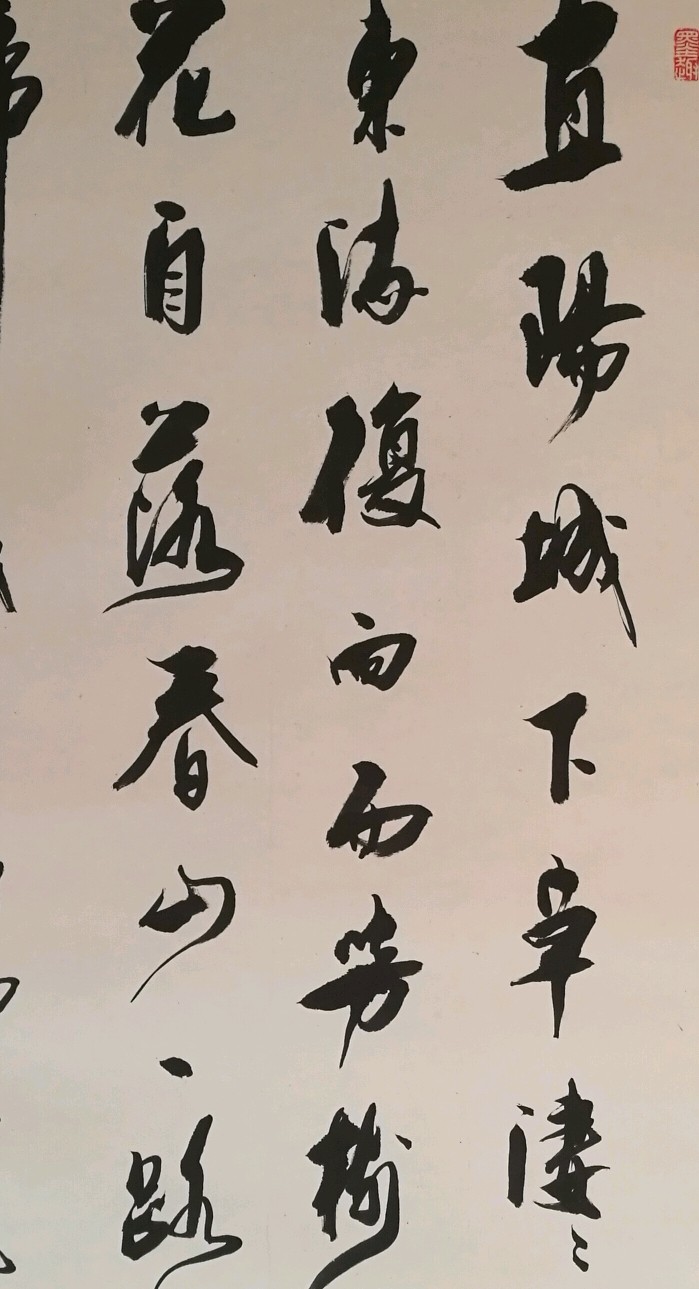 宜陽城下草淒〻
東流復向西芳樹
花自落春山一路